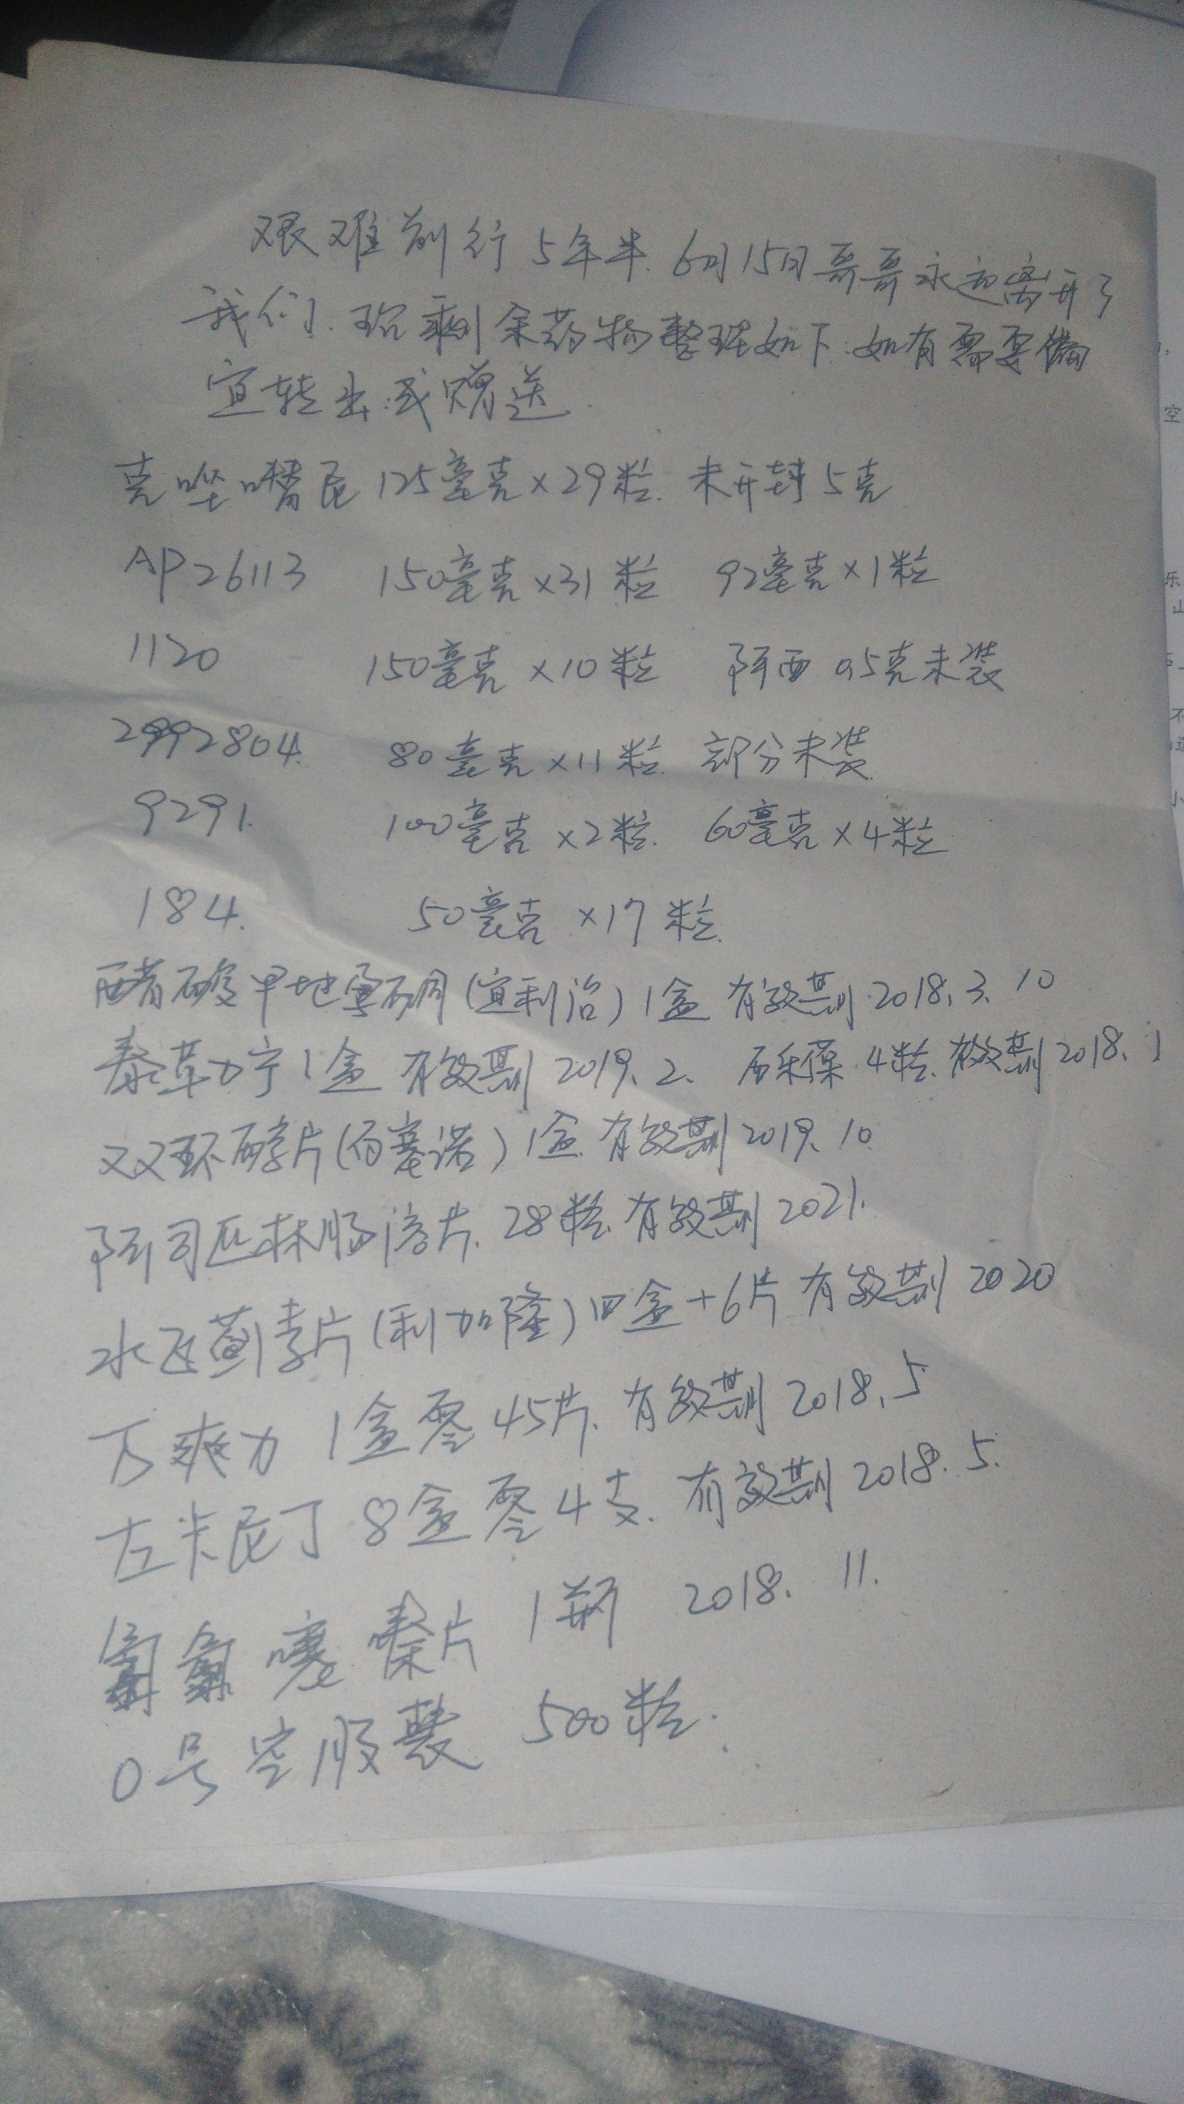 艰难前行5年半.6月15日哥哥永远离开了
我们.现剩余药物整理如下.如有需要偏
宜转出或赠送.
克唑嚌尼 125毫克×29粒. 未开封5克
AP26113 150毫克×31粒 92毫克×1粒
1120 150毫克×10粒 阿西0.5克未装
2992804. 80毫克×11粒. 部分未装.
9291. 100毫克×2粒. 60毫克×4粒
184. 50毫克×17粒.
醋酸甲地孕酮(宜利治)1盒 有效期2018.3.10
泰革力宁1盒 有效期2019.2. 4粒.有效期2018.1
双环醇片(百塞诺)1盒.有效期2019.10.
阿司匹林肠溶片.28粒.有效期2021.
水飞蓟素片(利加隆)四盒+6片 有效期2020
万爽力 1盒零45片.有效期2018.5
左卡尼丁 8盒零4支.有效期2018.5.
氟氯噻嗪片 1瓶 2018.11.
0号空胶囊 500粒.
乐
山
不
小
空